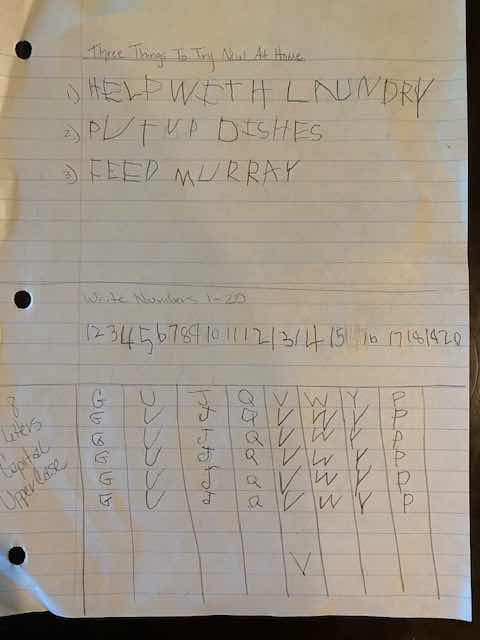 Three Things To Try New At Home
1) HELP WITH LAUNDRY
2) PUT UP DISHES
3) FEED MURRAY
Write Numbers 1-20
1 2 3 4 5 6 7 8 9 10 11 12 13 14 15 16 17 18 19 20
8 Letters Capital Uppercase
G U J Q V W Y P
G U J Q V W Y P
G U J Q V W Y P
G U J Q V W Y P
G U J Q V W Y P
G U J Q V W Y P
V